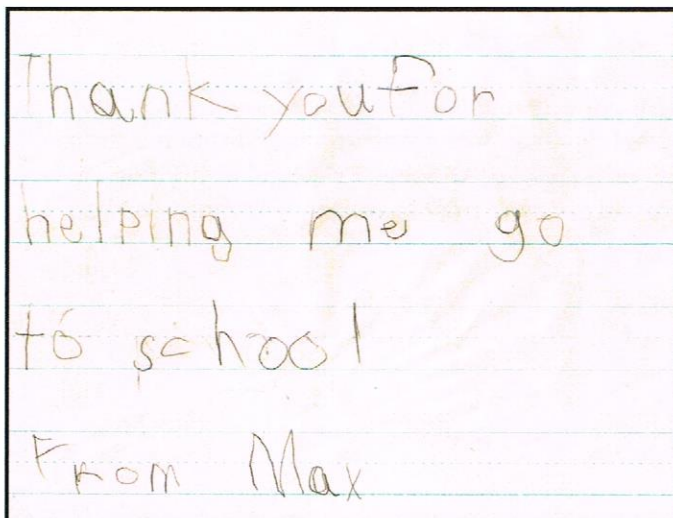 Thank you For
helping me go
to school
From Max